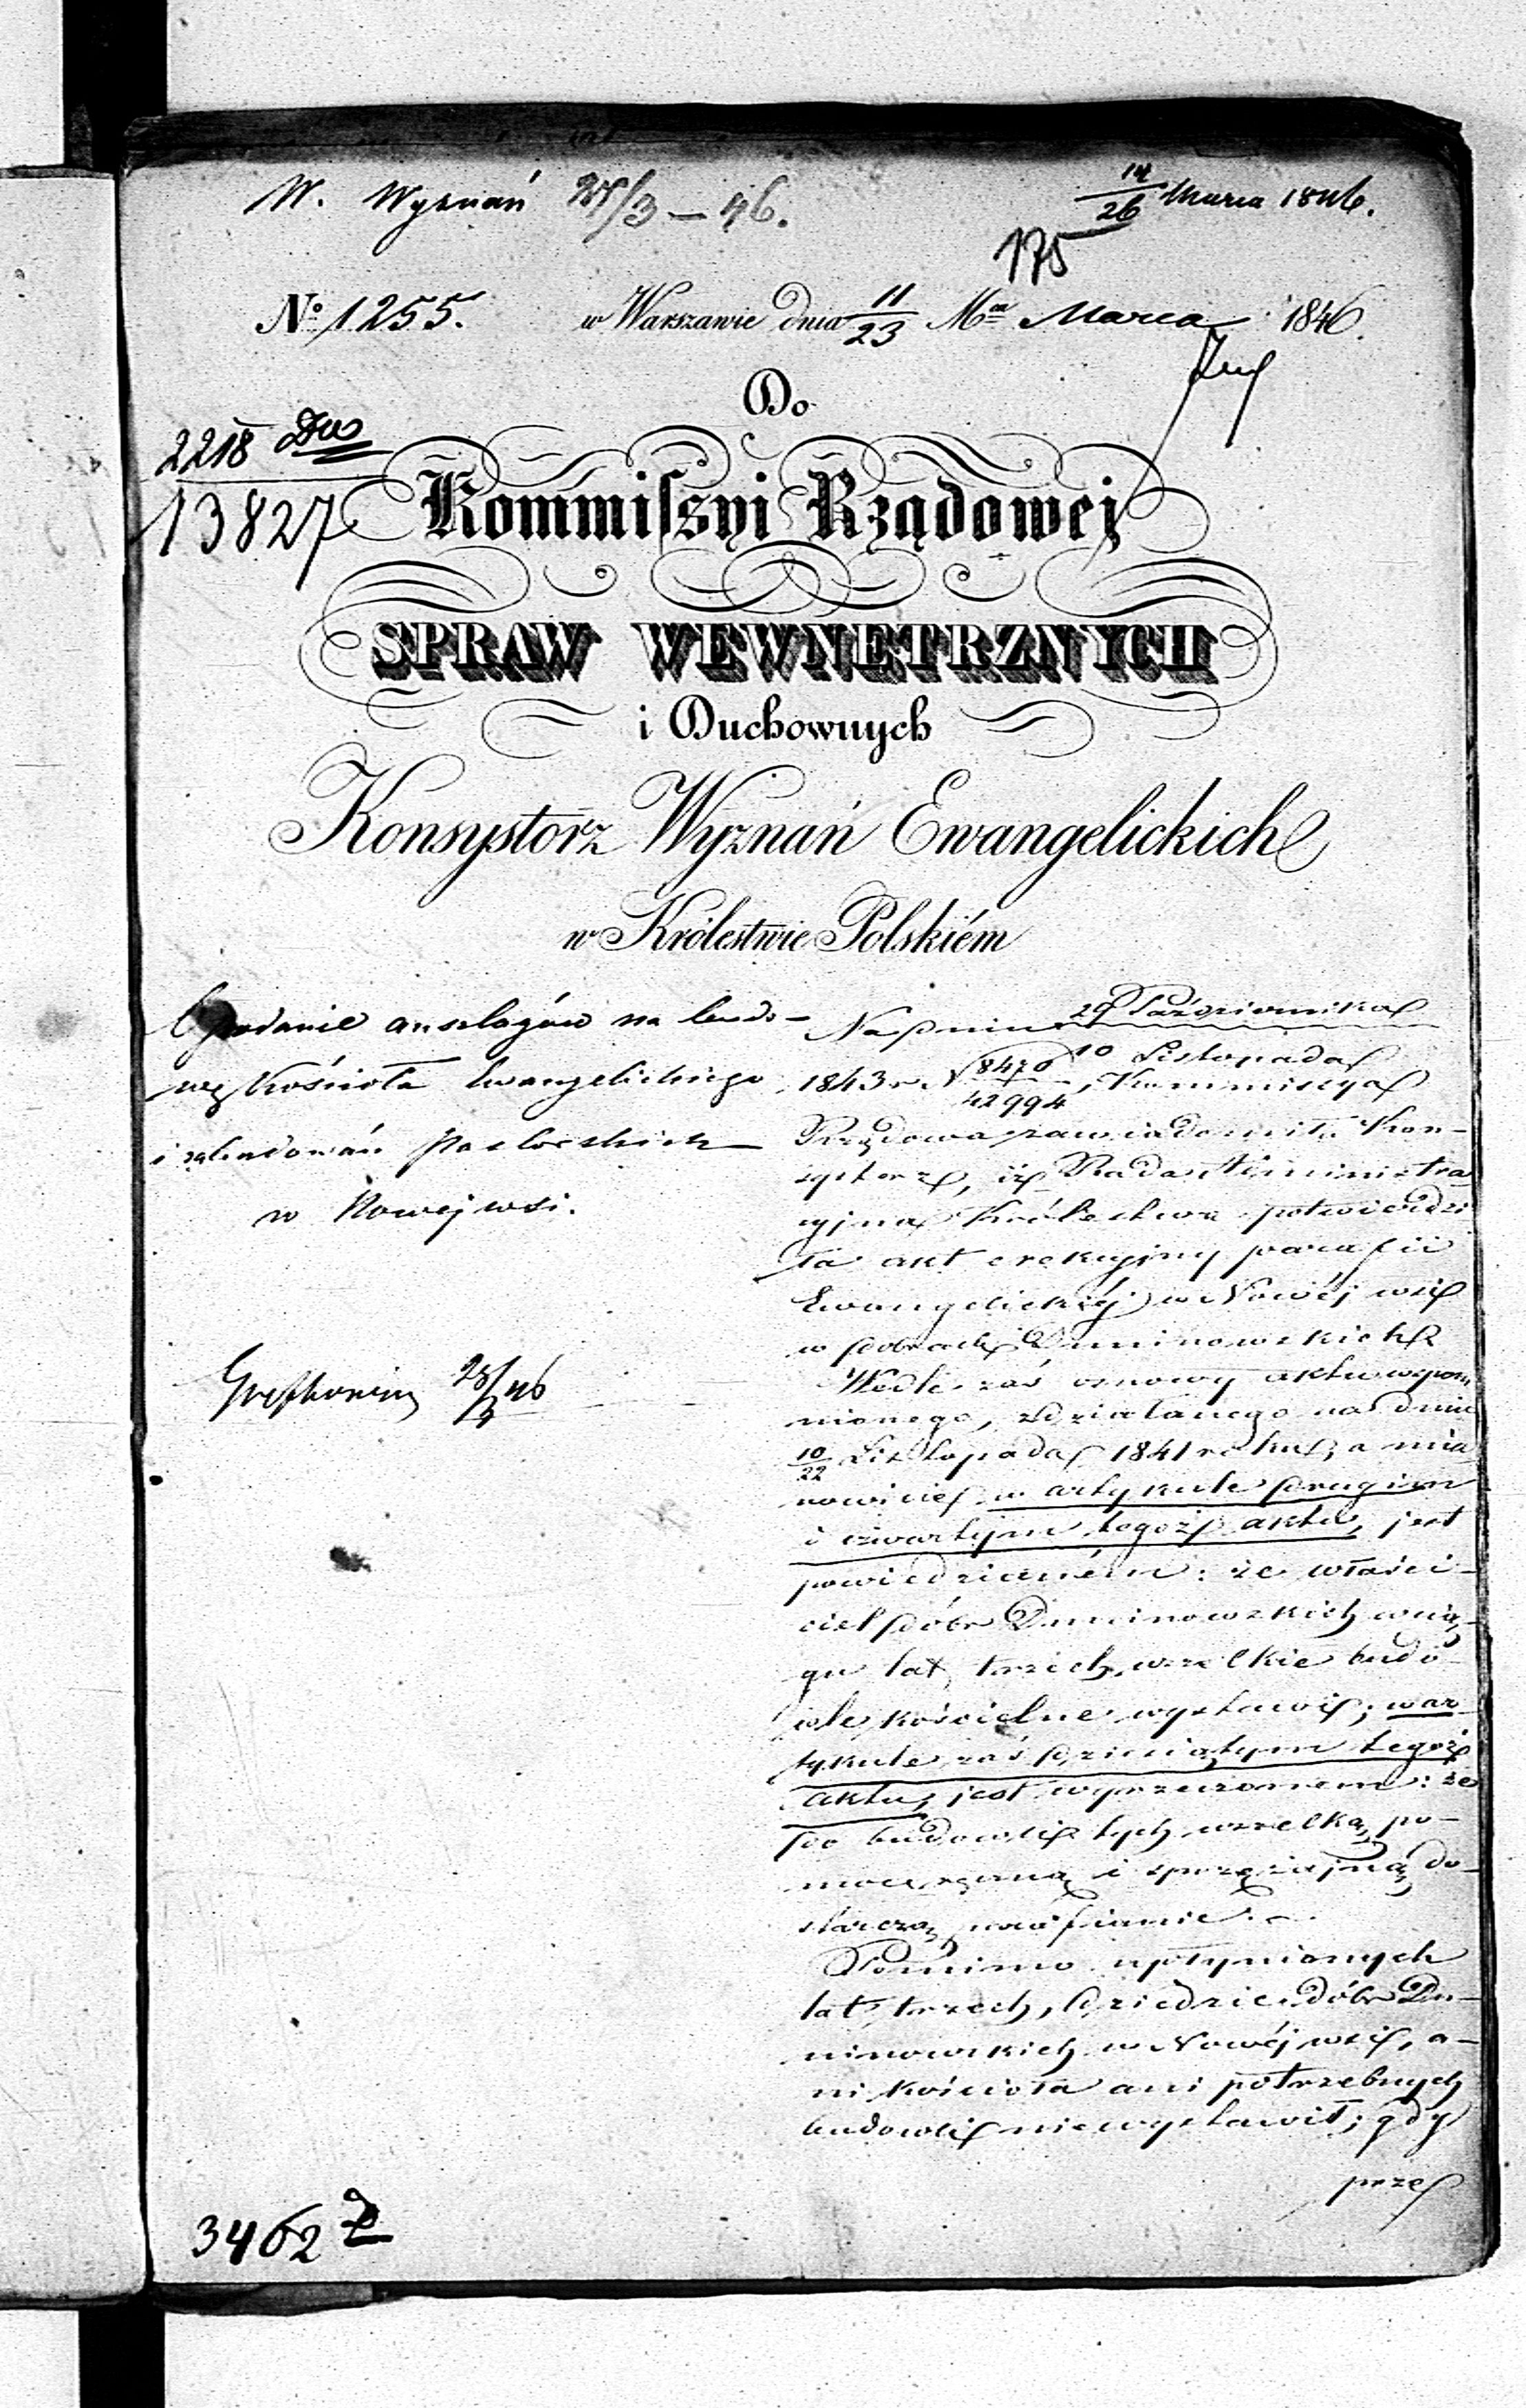 W. Wyznań 27/3 – 46.
14/26 Marca 1846.
175
No 1255. w Warszawie dnia 11/23 Mca Marca 1846.
Do
2218 Dus
13827
Kommissyi Rządowej
SPRAW WEWNĘTRZNYCH
i Duchownych
Konsystorz Wyznań Ewangelickich
w Królestwie Polskiém
O podanie anszlagów na budo-
wę Kościoła Ewangelickiego
i zabudowań Pastorskich
w Nowejwsi.
28/4 46
Na pismo 29 Października
10 Listopada
1843 r. N 8470/42994, Kommissya
Rządowa zawiadomiła Kon-
systorz, iż Rada Administra
cyjna Królestwa potwierdzi
ła akt erekcyjny parafii
Ewangelickiéj w Nowéj wsi
w dobrach Duninowskich
Wedle zaś osnowy aktu wspom
nionego, zdziałanego na dniu
10/22 Listopada 1841 roku, a mia
nowicie w artykule drugim
i czwartym tegoż aktu, jest
powiedzianém: że właści-
ciel dóbr Duninowskich w cią-
gu lat trzech, wszelkie budo-
wle kościelne wystawi; w ar-
tykule zaś dziewiątym tegoż
aktu, jest wyrzeczonem: że
do budowli tych wszelką po-
moc ręczną i sprzężajną do-
starczą parafianie.
Pomimo upłynionych
lat trzech, dziedzic dóbr Du-
ninowskich w Nowéj wsi, a-
ni kościoła ani potrzebnych
budowli niewystawił; gdy
prze
3462